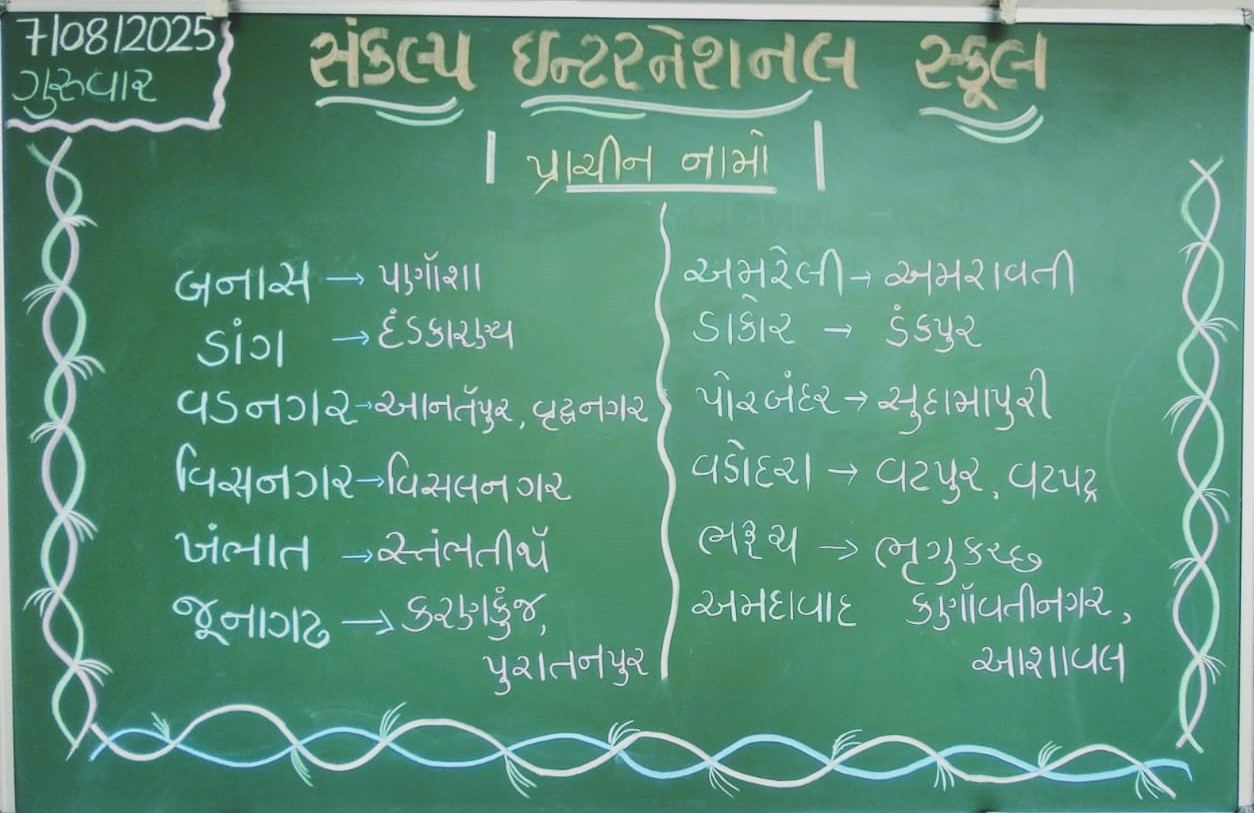 7/08/2025
ગુરુવાર
સંકલ્પ ઇન્ટરનેશનલ સ્કૂલ
પ્રાચીન નામો
બનાસ → પર્ણાશા
ડાંગ → દંડકારણ્ય
વડનગર → આનર્તપુર, વૃદ્ધનગર
વિસનગર → વિસલનગર
ખંભાત → સ્તંભતીર્થ
જૂનાગઢ → કરણકુંજ,
પુરાતનપુર
અમરેલી → અમરાવતી
ડાકોર → ડંકપુર
પોરબંદર → સુદામાપુરી
વડોદરા → વટપુર, વટપદ્ર
ભરૂચ → ભૃગુકચ્છ
અમદાવાદ કર્ણાવતીનગર,
આશાવલ